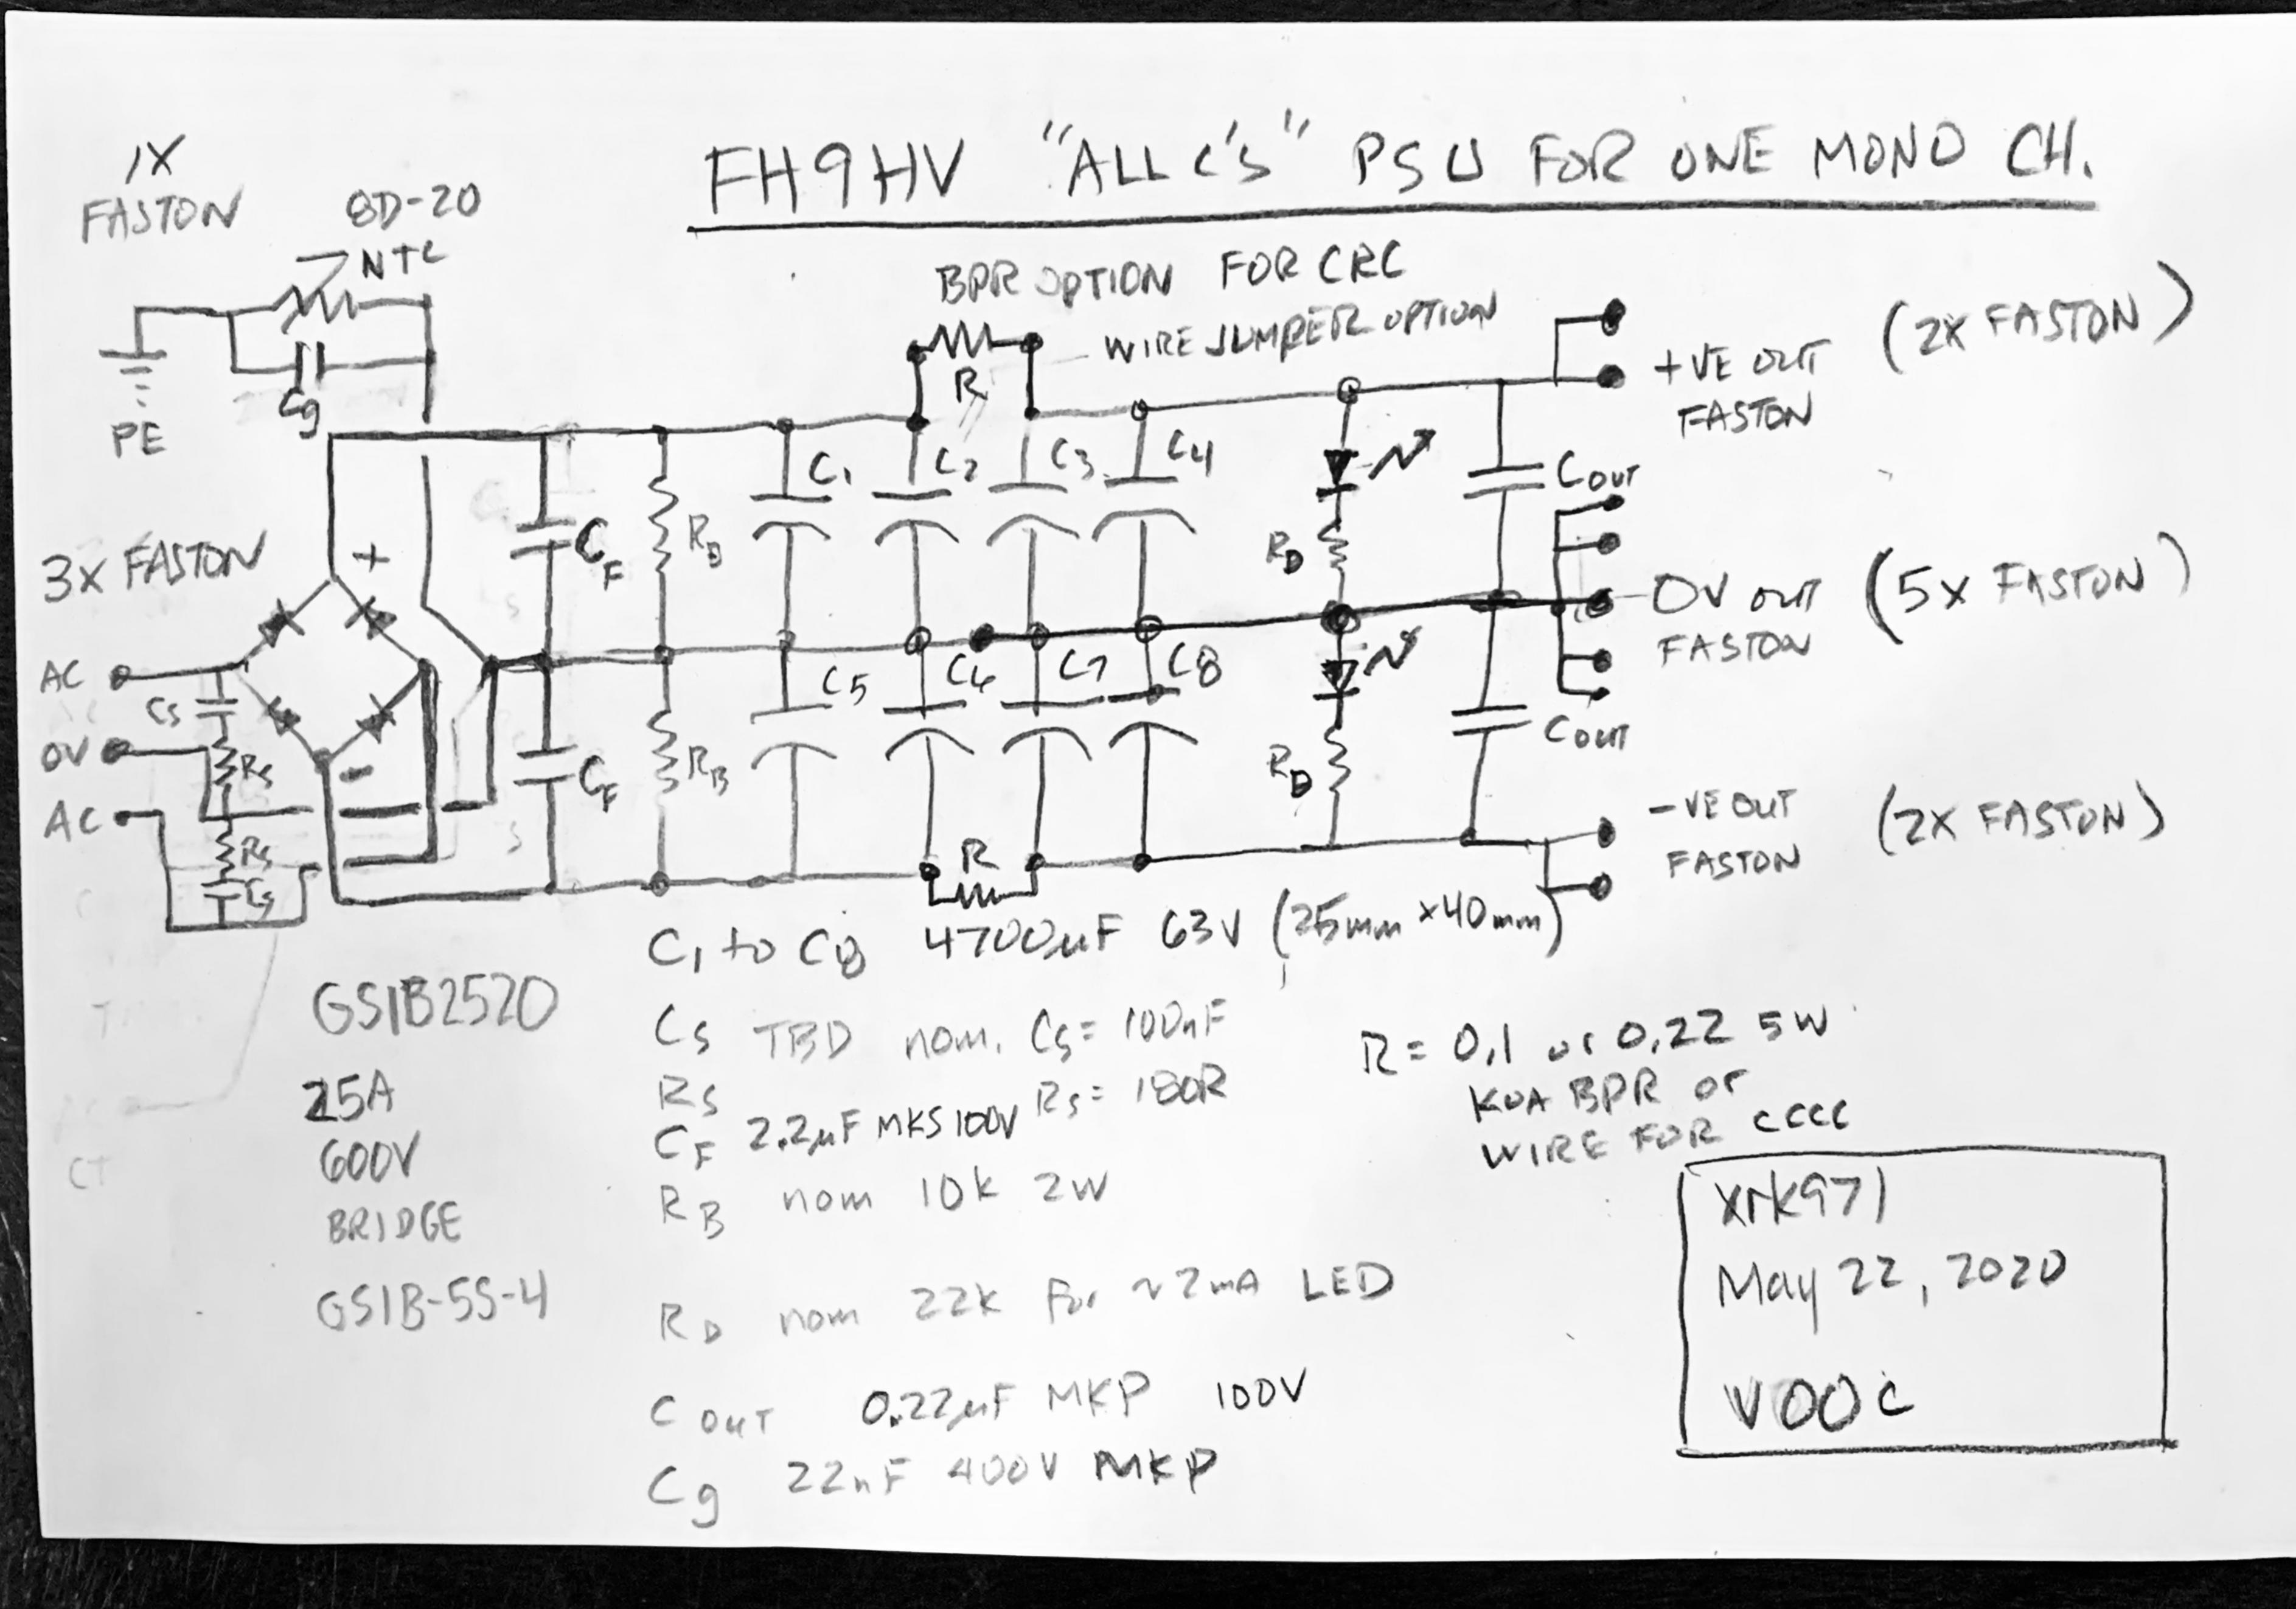 FH9HV "ALL C's" PSU FOR ONE MONO CH.
1X
FASTON
8D-20
NTC
Cg
PE
BPR OPTION FOR CRC
WIRE JUMPER OPTION
R
+VE OUT (2X FASTON)
FASTON
C1
C2
C3
C4
COUT
CF
RB
RD
3X FASTON
+
AC
CS
0V
RS
AC
RS
CS
-
0V OUT (5X FASTON)
FASTON
C5
C6
C7
C8
CF
RB
RD
COUT
R
-VE OUT (2X FASTON)
FASTON
C1 to C8 4700uF 63V (25mm x40mm)
GSIB2520
25A
600V
BRIDGE
GSIB-5S-4
CS TBD nom. CS= 100nF
RS RS= 180R
CF 2.2uF MKS 100V
RB nom 10k 2W
RD nom 22k for ~2mA LED
COUT 0.22uF MKP 100V
Cg 22nF 400V MKP
R= 0,1 or 0,22 5W
KOA BPR or
WIRE FOR CCCC
xrk971
May 22, 2020
V00C
CT